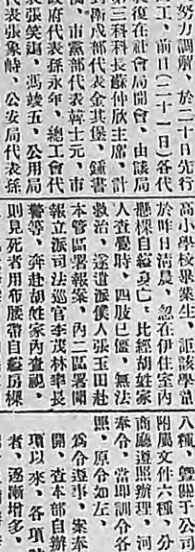 努力調解、於二十日先行
工、前日(二十一日)各代
復在社會局開會、由該局
第三科科長蘇仲欣主席、計
衛戍部代表金其堡、鍾書
、市黨部代表韓士元、市
政府代表孫永年、總工會代
表張笑鋤、馮竣五、公用局
代表張象時、公安局代表孫
高小學校畢業生、詎該學童
於昨日清晨、忽在伊住室內
懸樑自縊身亡、比經胡姓家
人查覺時、四肢已僵、無法
救治、遂遣派僕人張玉田赴
本管區署報案、內二區署聞
報立派司法巡官李茂林率長
警等、奔赴胡姓家內查視、
則見死者用布腰帶自縊房樑
八種、暨關于公司
附屬文件六種、分
商廳遵照辦理、河
奉令、當即訓令各
照、原令如左、
為令遵事、案奉
開、查本部自辦
項以來、各項
者、逐漸增多、